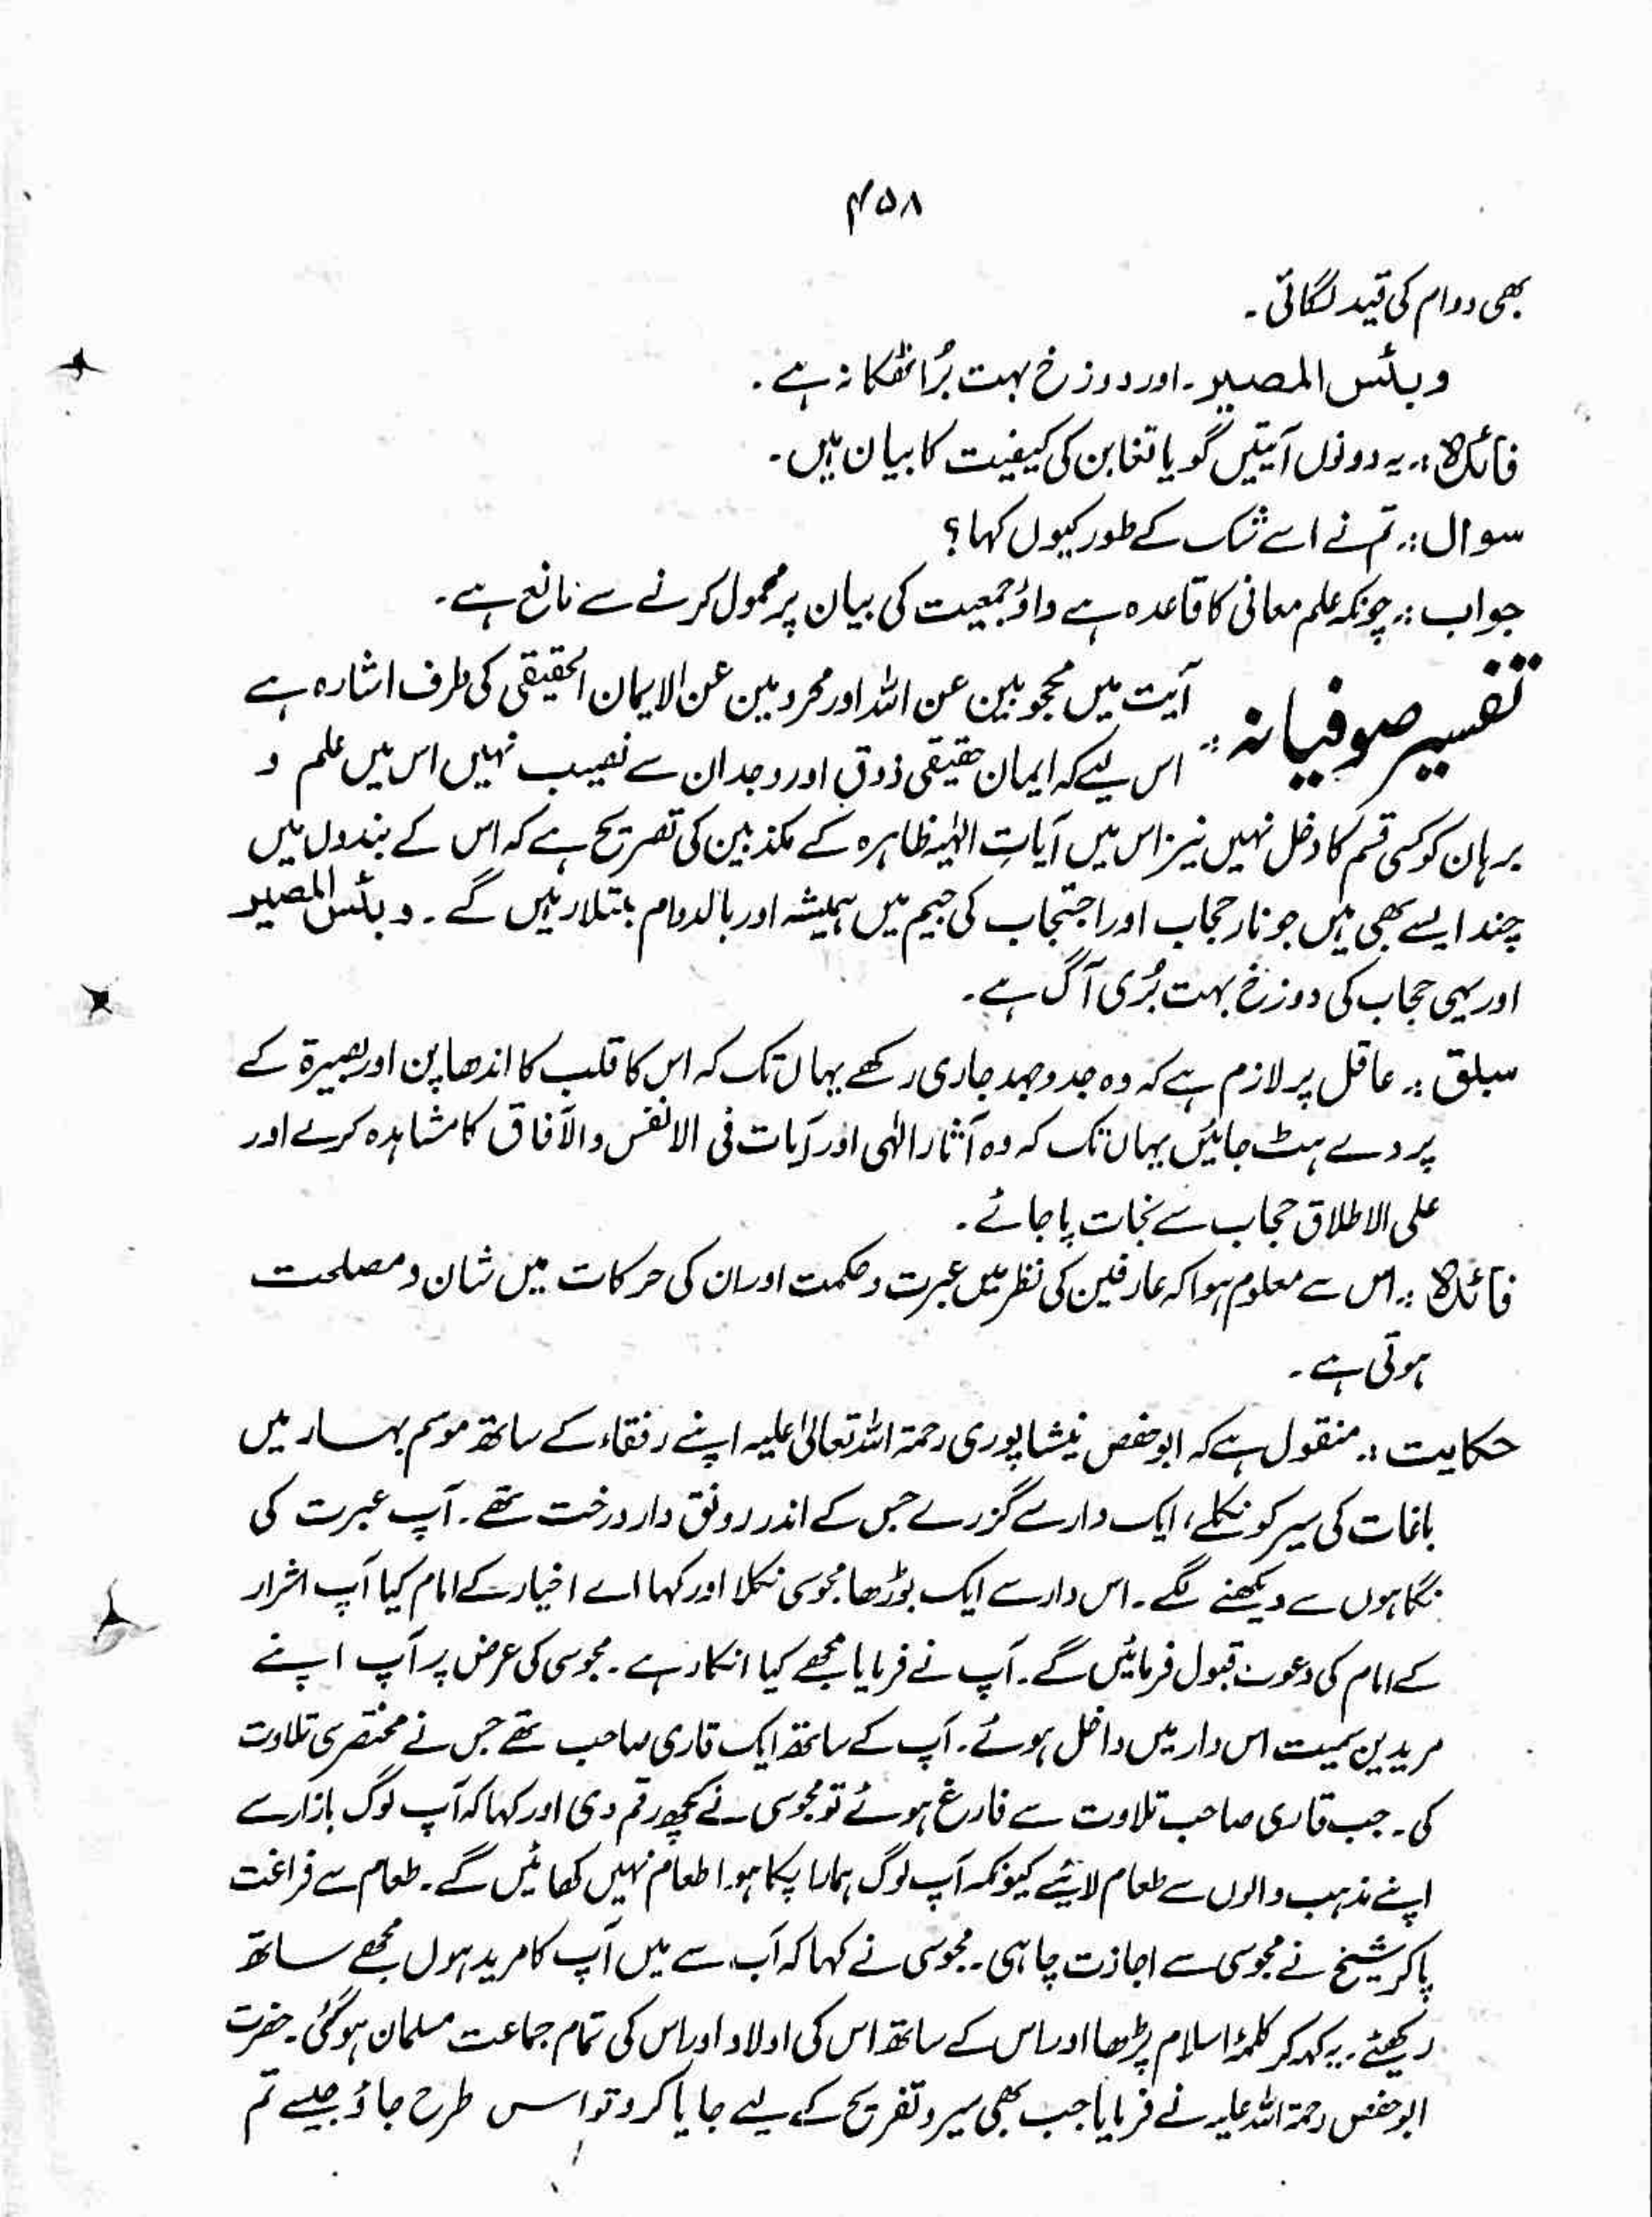 ۴۵۸
بھی دوام کی قید لگائی۔
وبئس المصیر۔ اور دوزخ بہت بُرا ٹھکانہ ہے۔
فائدہ:۔ یہ دونوں آیتیں گویا تغابن کی کیفیت کا بیان ہیں۔
سوال:۔ تم نے اسے شک کے طور کیوں کہا؟
جواب:۔ چونکہ علم معانی کا قاعدہ ہے واؤ جمعیت کی بیان پر محمول کرنے سے مانع ہے۔
تفسیر صوفیانہ:۔ آیت میں محجوبین عن اللہ اور محرومین عن الایمان الحقیقی کی طرف اشارہ ہے
اس لیے کہ ایمان حقیقی ذوق اور وجدان سے نصیب نہیں اس میں علم و
برہان کو کسی قسم کا دخل نہیں نیز اس میں آیات الٰہیہ ظاہرہ کے مکذبین کی تصریح ہے کہ اس کے بندوں میں
چند ایسے بھی ہیں جو نار حجاب اور احتجاب کی جحیم میں ہمیشہ اور بالدوام مبتلا رہیں گے۔ وبئس المصیر
اور یہی حجاب کی دوزخ بہت بُری آگ ہے۔
سبلق:۔ عاقل پر لازم ہے کہ وہ جد وجہد جاری رکھے یہاں تک کہ اس کا قلب کا اندھا پن اور بصیرۃ کے
پردے ہٹ جائیں یہاں تک کہ وہ آثار الٰہی اور آیات فی الانفس والآفاق کا مشاہدہ کرے اور
علی الاطلاق حجاب سے نجات پا جائے۔
فائدہ:۔ اس سے معلوم ہوا کہ عارفین کی نظر میں عبرت و حکمت اور ان کی حرکات میں شان و مصلحت
ہوتی ہے۔
حکایت:۔ منقول ہے کہ ابو حفص نیشاپوری رحمۃ اللہ تعالیٰ علیہ اپنے رفقاء کے ساتھ موسم بہار میں
باغات کی سیر کو نکلے، ایک دار سے گزرے جس کے اندر رونق دار درخت تھے۔ آپ عبرت کی
نگاہوں سے دیکھنے لگے۔ اس دار سے ایک بوڑھا مجوسی نکلا اور کہا اے اخیار کے امام کیا آپ اشرار
کے امام کی دعوت قبول فرمائیں گے۔ آپ نے فرمایا مجھے کیا انکار ہے۔ مجوسی کی عرض پر آپ اپنے
مریدین سمیت اس دار میں داخل ہوئے۔ آپ کے ساتھ ایک قاری صاحب تھے جس نے مختصر سی تلاوت
کی۔ جب قاری صاحب تلاوت سے فارغ ہوئے تو مجوسی نے کچھ رقم دی اور کہا کہ آپ لوگ بازار سے
اپنے مذہب والوں سے طعام لائیے کیونکہ آپ لوگ ہمارا پکا ہوا طعام نہیں کھائیں گے۔ طعام سے فراغت
پاکر شیخ نے مجوسی سے اجازت چاہی۔ مجوسی نے کہا کہ آب سے میں آپ کا مرید ہوں مجھے ساتھ
رکھئے۔ یہ کہہ کر کلمۂ اسلام پڑھا اور اس کے ساتھ اس کی اولاد اور اس کی تمام جماعت مسلمان ہوگئی۔ حضرت
ابو حفص رحمۃ اللہ علیہ نے فرمایا جب بھی سیر و تفریح کے لیے جایا کرو تو اس طرح جاؤ جیسے تم